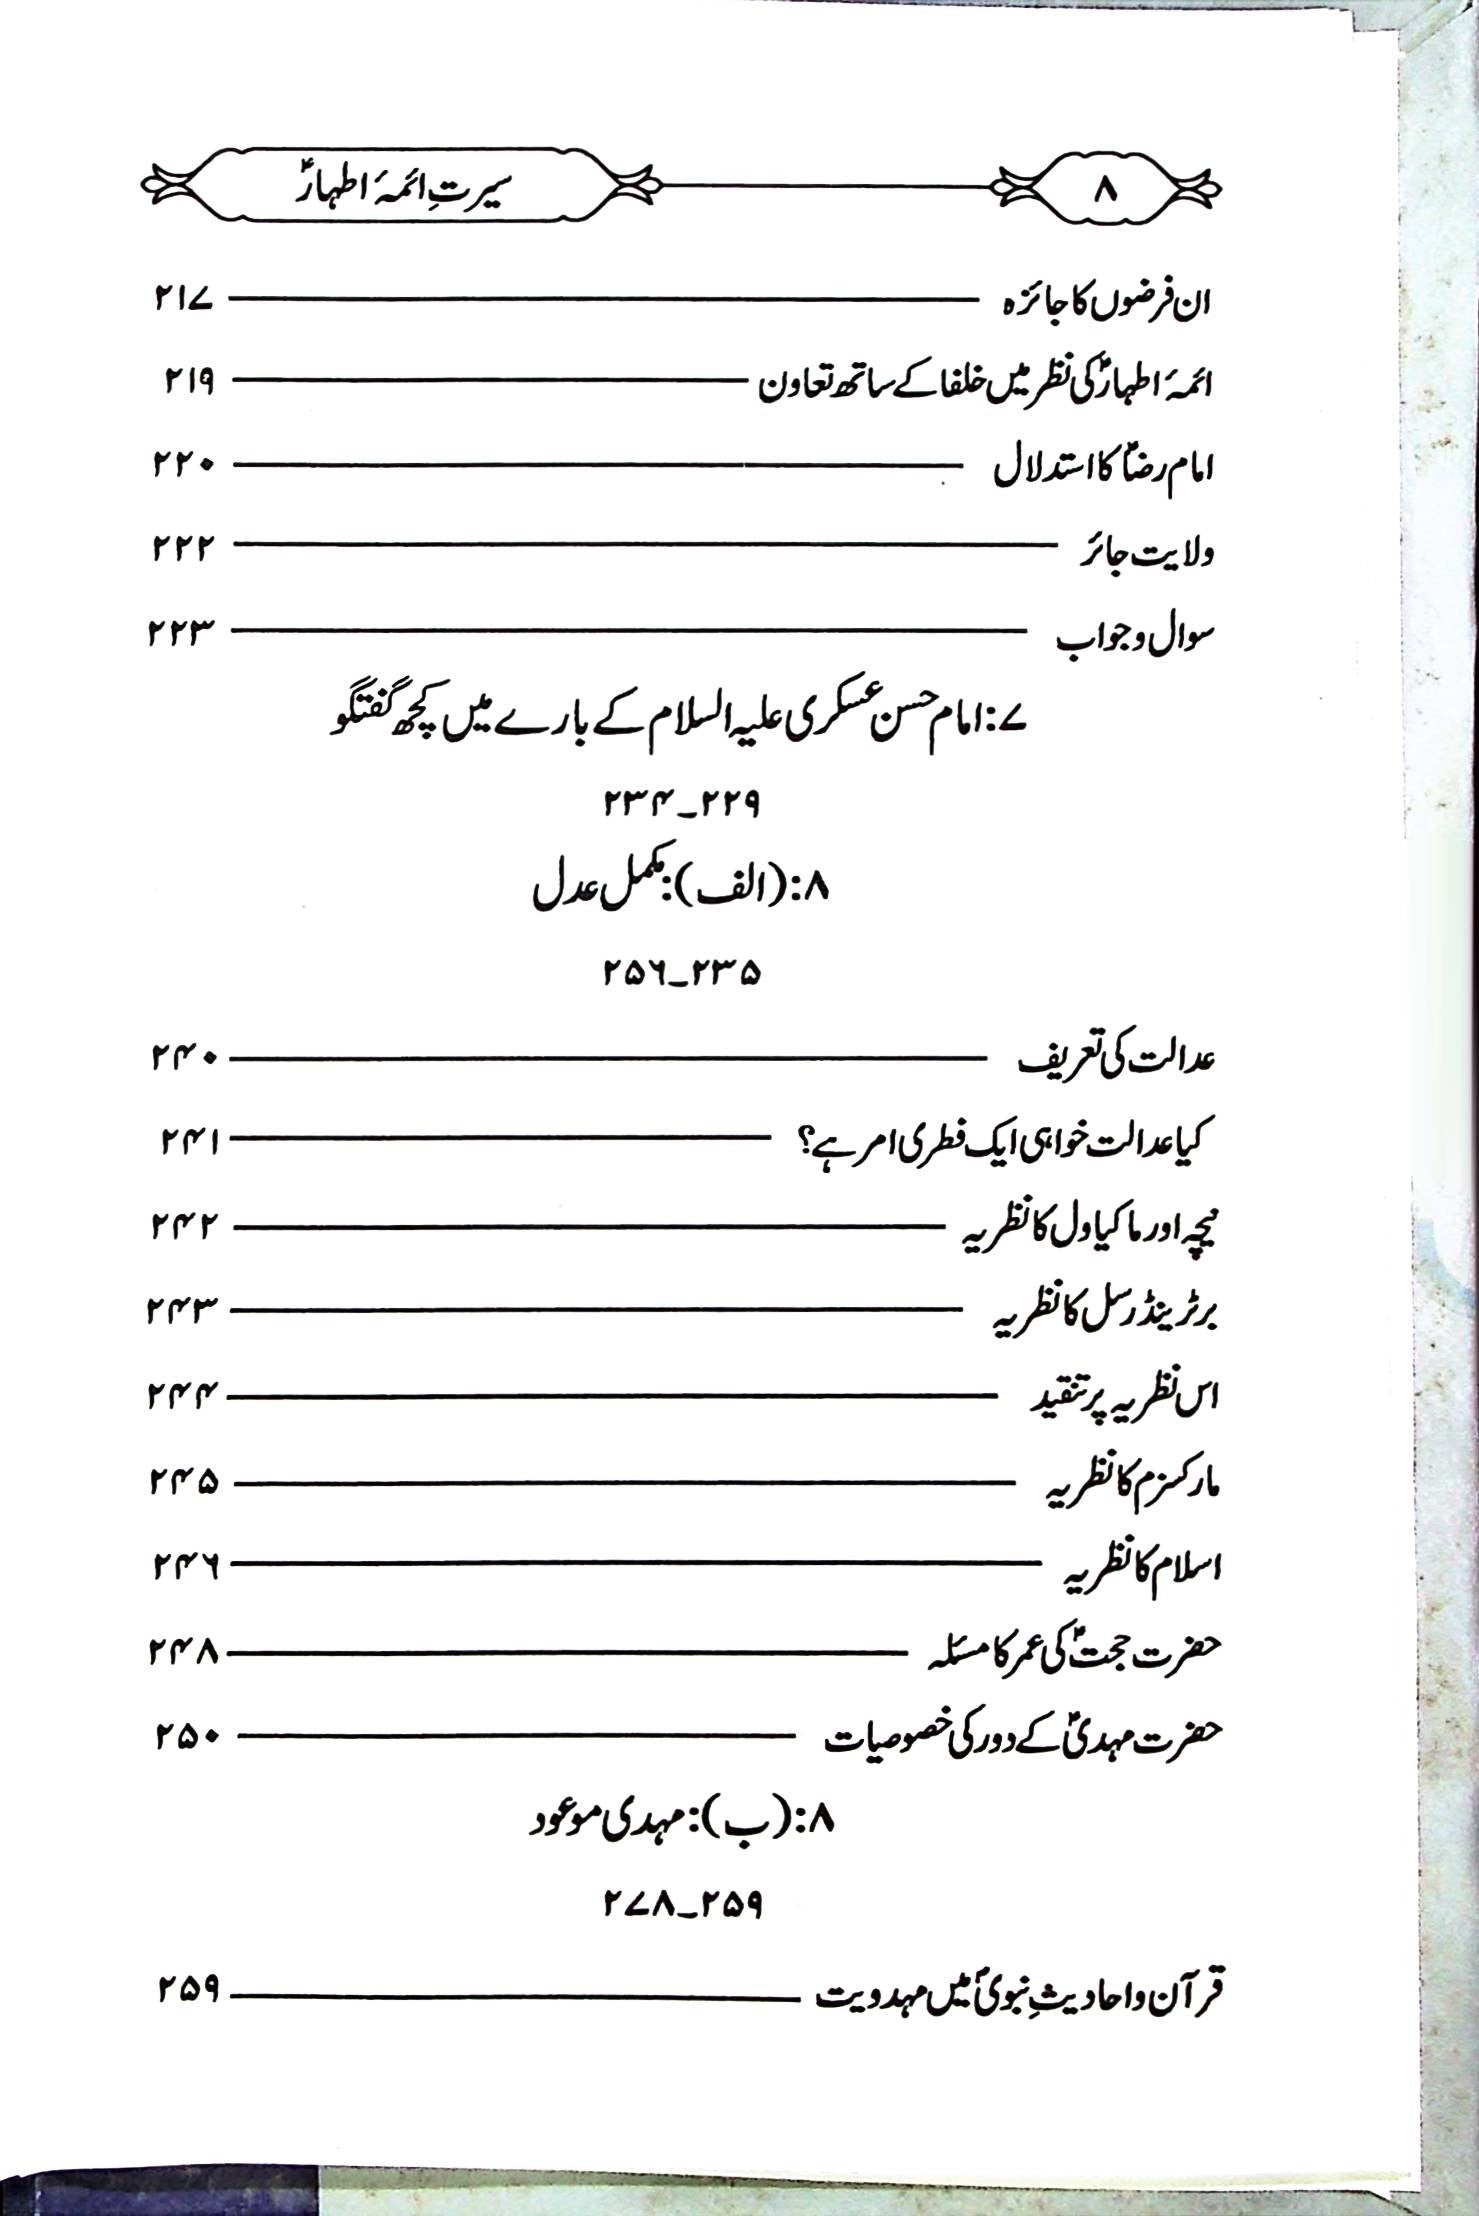 ۸ سیرتِ ائمۂ اطہارؑ
ان فرضوں کا جائزہ ۲۱۷
ائمۂ اطہارؑ کی نظر میں خلفا کے ساتھ تعاون ۲۱۹
امام رضاؑ کا استدلال ۲۲۰
ولایت جائر ۲۲۲
سوال و جواب ۲۲۳
۷: امام حسن عسکری علیہ السلام کے بارے میں کچھ گفتگو
۲۲۹_۲۳۴
۸: (الف): مکمل عدل
۲۳۵_۲۵۶
عدالت کی تعریف ۲۴۰
کیا عدالت خواہی ایک فطری امر ہے؟ ۲۴۱
نیچہ اور ماکیاول کا نظریہ ۲۴۲
برٹرینڈ رسل کا نظریہ ۲۴۳
اس نظریہ پر تنقید ۲۴۴
مارکسزم کا نظریہ ۲۴۵
اسلام کا نظریہ ۲۴۶
حضرت حجتؑ کی عمر کا مسئلہ ۲۴۸
حضرت مہدیؑ کے دور کی خصوصیات ۲۵۰
۸: (ب): مہدی موعود
۲۵۹_۲۷۸
قرآن و احادیثِ نبویؐ میں مہدویت ۲۵۹